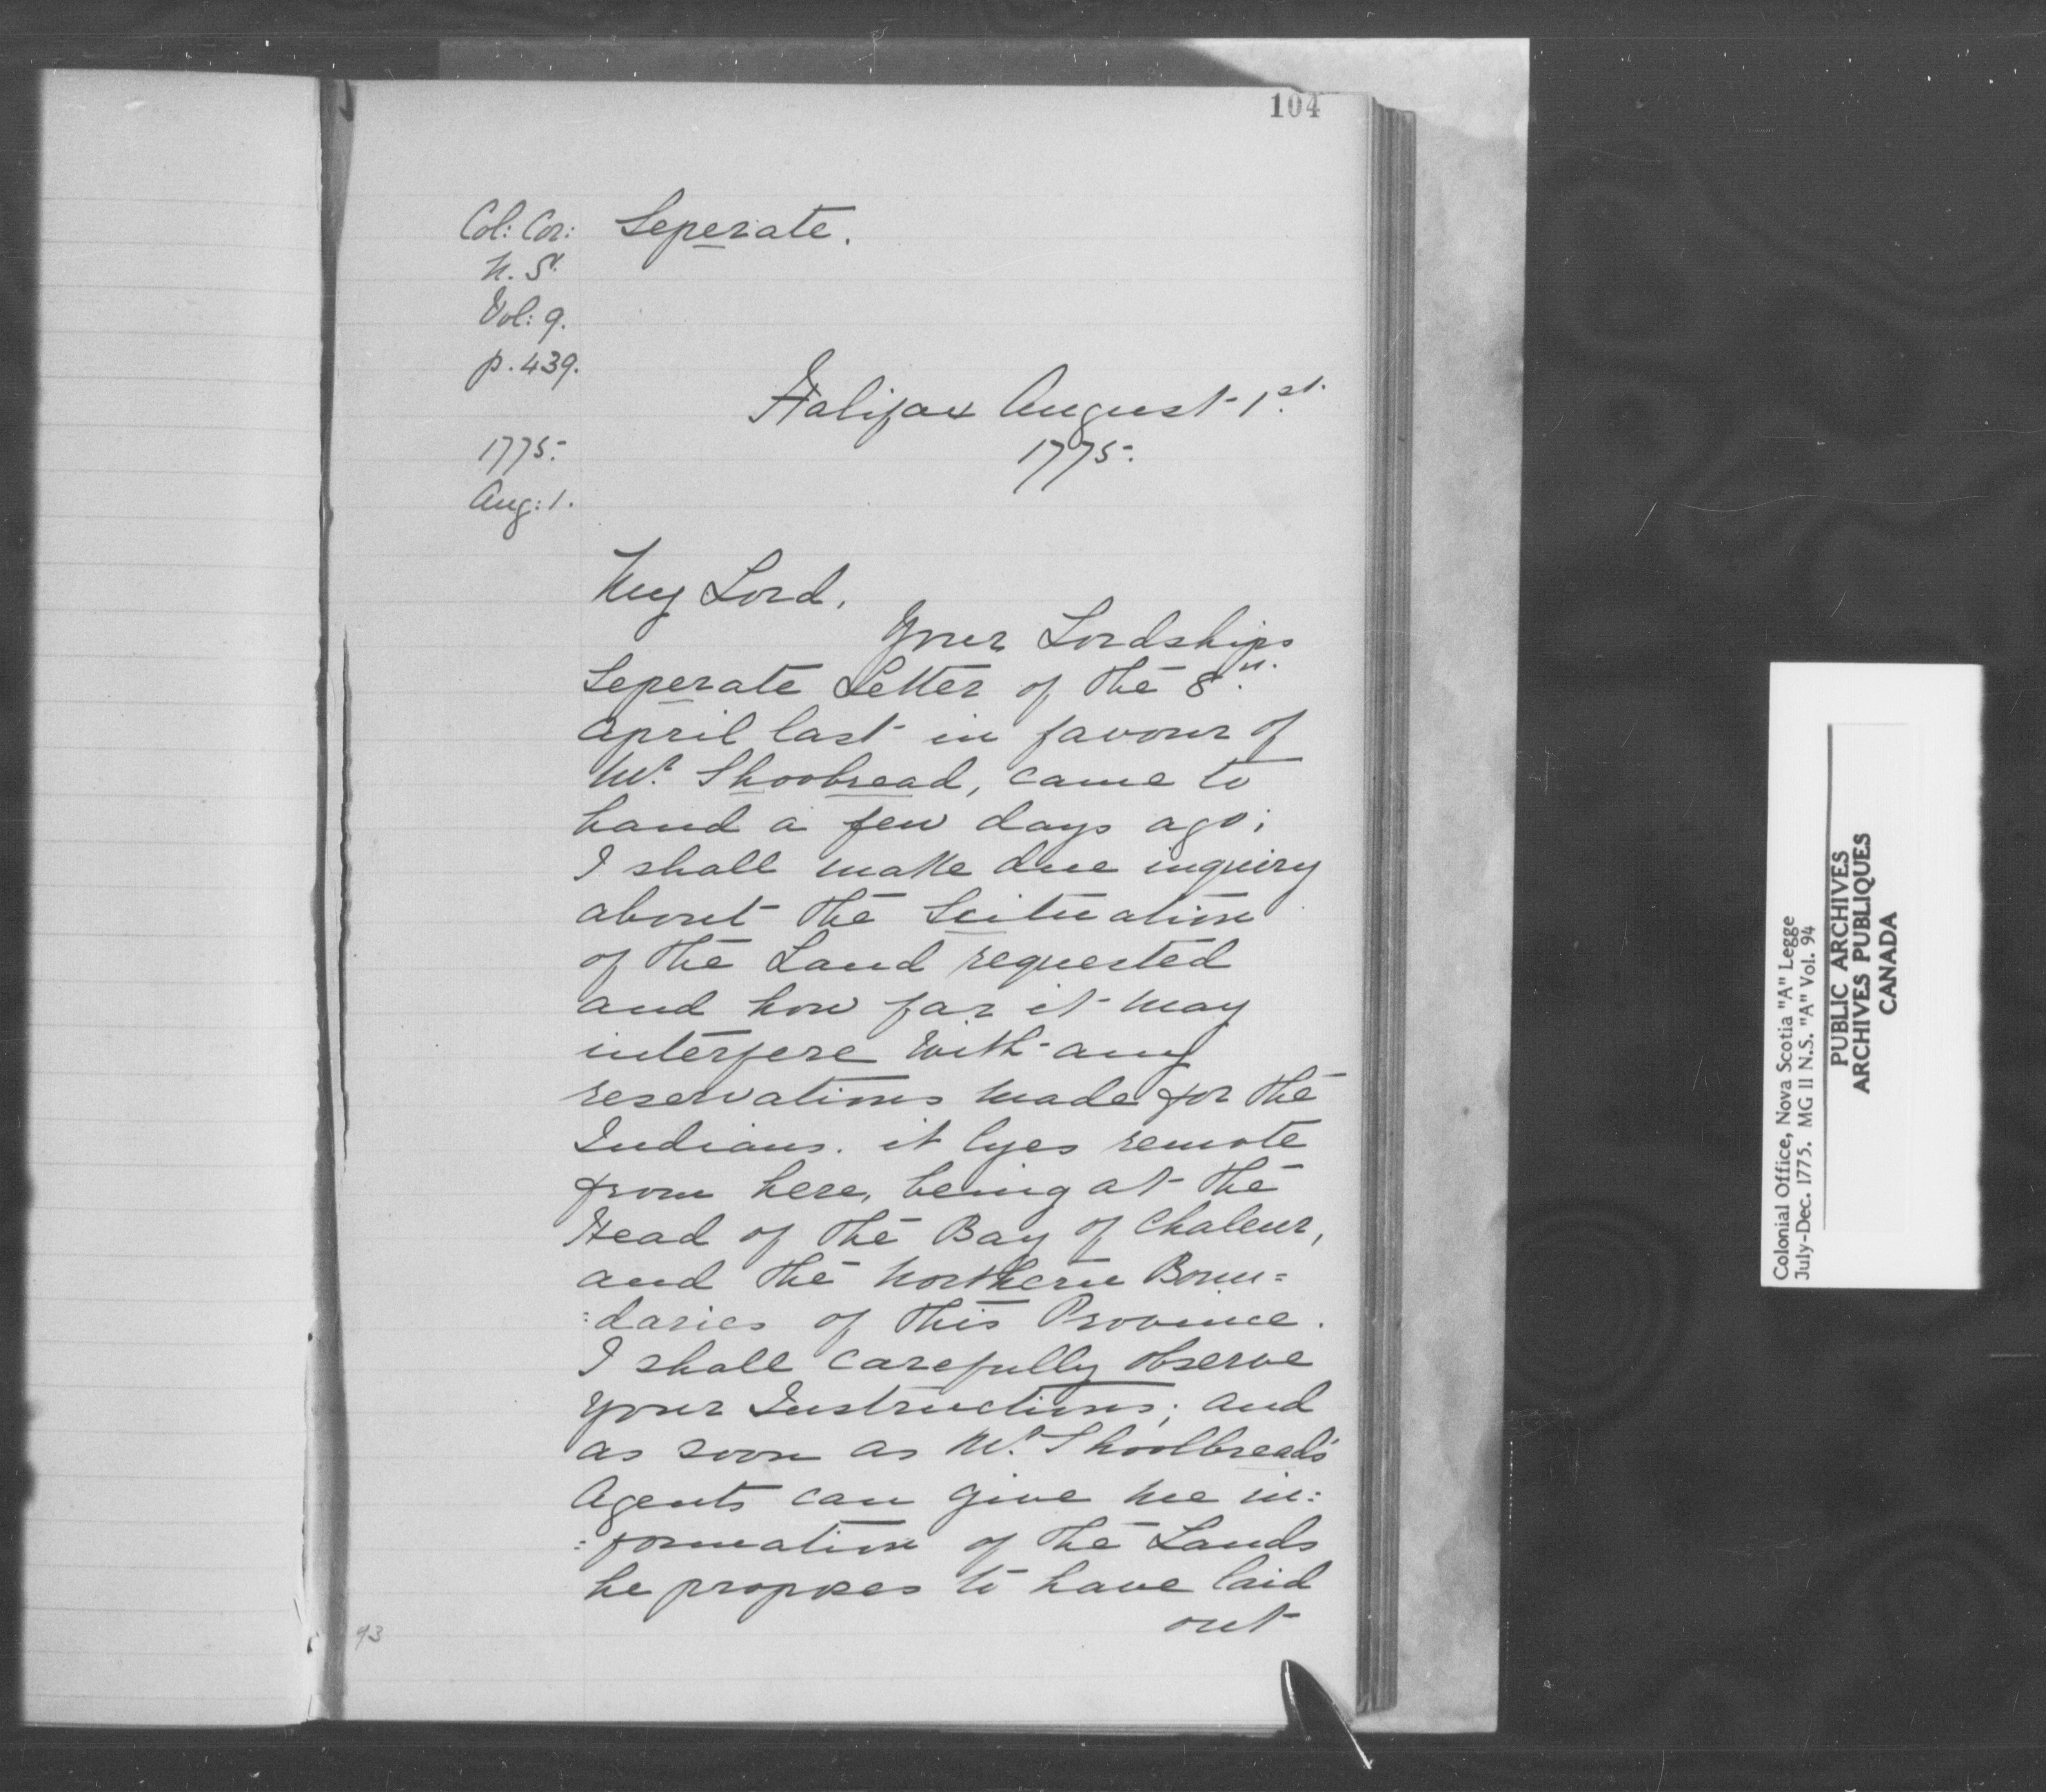 104
Col: Cor:
N. S.
Vol: 9.
p. 439.
1775.
Aug: 1.
Seperate.
Halifax August 1st.
1775.
My Lord,
Your Lordships
Seperate Letter of the 8th.
April last in favour of
Mr. Shoobread, came to
hand a few days ago;
I shall make due inquiry
about the Scituation
of the Land requested
and how far it may
interfere with any
reservations made for the
Indians. it lyes remote
from here, being at the
Head of the Bay of Chaleur,
and the Northern Boun=
=daries of this Province.
I shall carefully observe
your Instructions; and
as soon as Mr. Shoolbread's
Agents can give me in:
:formation of the Lands
he proposes to have laid
out
93
Colonial Office, Nova Scotia "A" Legge
July-Dec. 1775. MG II N.S. "A" Vol. 94
PUBLIC ARCHIVES
ARCHIVES PUBLIQUES
CANADA